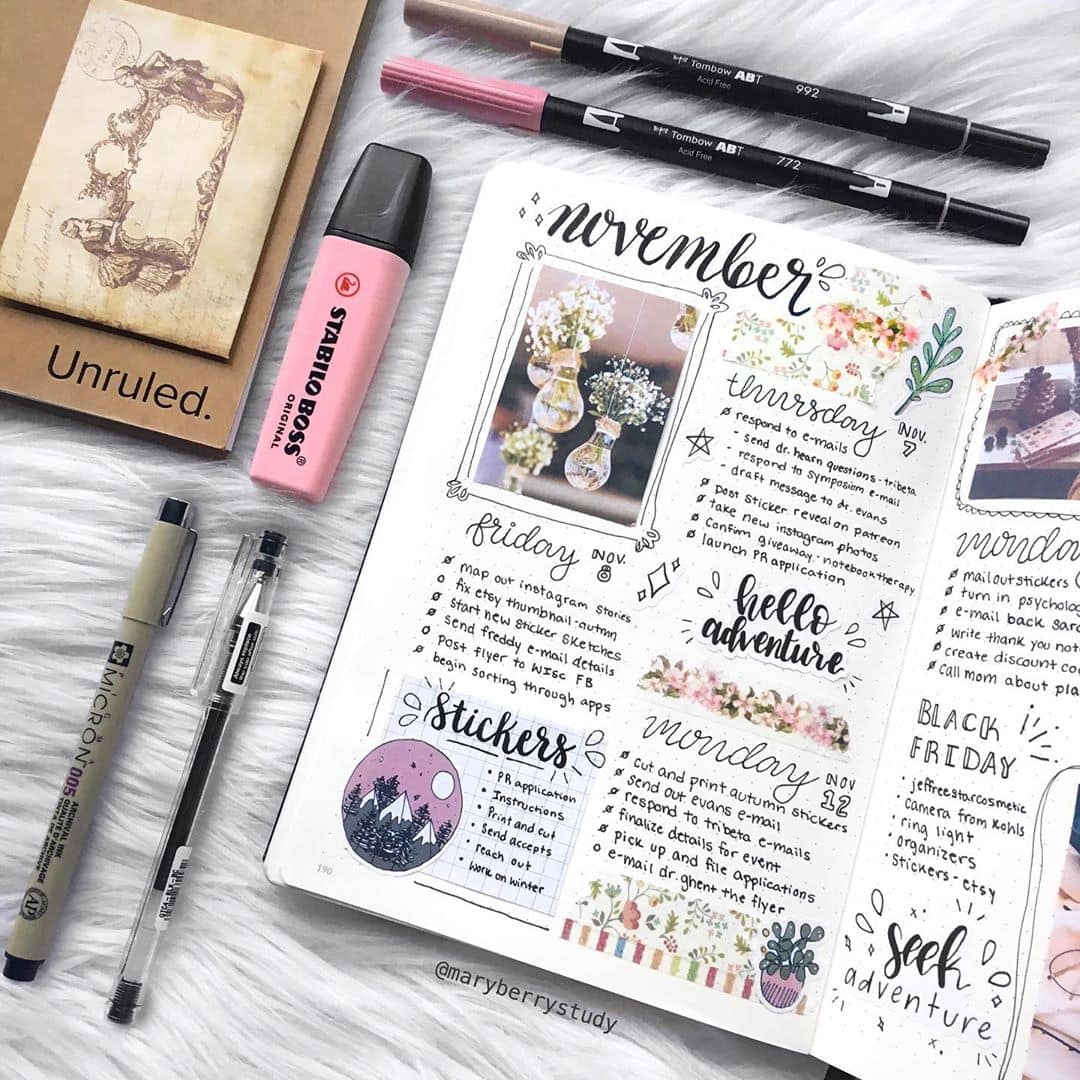 Unruled.
STABILO BOSS®
ORIGINAL
Tombow ABT
Acid Free
992
Tombow ABT
Acid Free
772
MICRON
005
ARCHIVAL INK
QUALITÉ D'ARCHIVAGE
AP
november
thursday
NOV.
7
respond to e-mails
- send dr. hearn questions - tribeta
- respond to symposium e-mail
- draft message to dr. evans
post sticker reveal on patreon
take new instagram photos
confirm giveaway - notebooktherapy
launch PR application
friday
NOV.
8
map out instagram stories
fix etsy thumbnail - autmn
start new sticker sketches
send freddy e-mail details
post flyer to WISC FB
begin sorting through apps
hello
adventure
stickers
• PR application
• Instructions
• Print and cut
• Send accepts
• reach out
• Work on winter
monday
NOV
12
cut and print autumn stickers
send out evans e-mail
respond to tribeta e-mails
finalize details for event
pick up and file applications
e-mail dr. ghent the flyer
190
monda
mail out stickers
turn in psycholog
e-mail back sar
write thank you not
create discount co
call mom about pla
BLACK
FRIDAY
• jeffreestarcosmetic
• camera from Kohls
• ring light
• organizers
• stickers - etsy
seek
adventure
@maryberrystudy